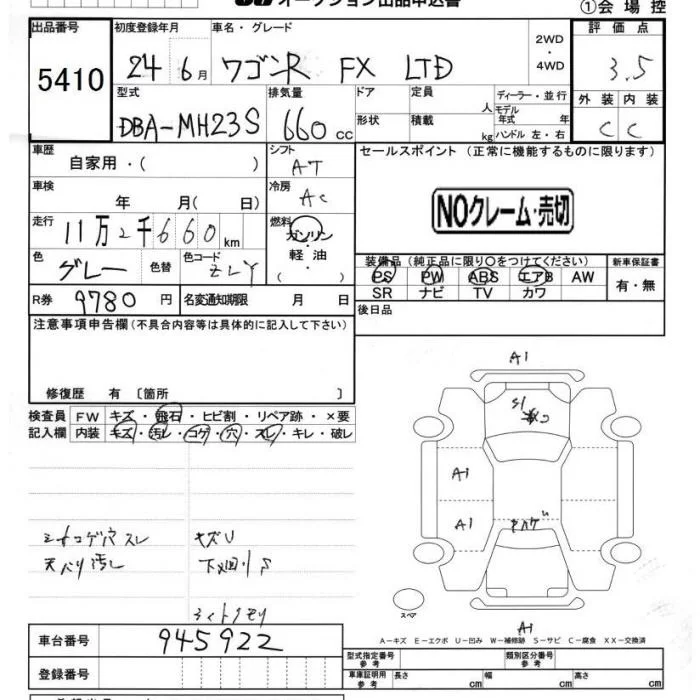 オークション出品申込書
①会場控
出品番号 初度登録年月 車名・グレード 評価点
5410 24 6月 ワゴンR FX LTD 2WD・4WD 3.5
型式 排気量 ドア 定員 人 ディーラー・並行 外装 内装
DBA-MH23S 660cc 形状 積載 kg モデル年式 年 ハンドル 左・右 C C
車歴 自家用・( ) シフト AT セールスポイント (正常に機能するものに限ります)
車検 年 月( 日) 冷房 AC NOクレーム・売切
走行 11万2千660km 燃料 ガソリン・軽油・( )
色 グレー 色替 色コード ZLY 装備品(純正品に限り○をつけてください) 新車保証書
PS PW ABS エアB AW 有・無
SR ナビ TV カワ
R券 9780円 名変通知期限 月 日 後日品
注意事項申告欄(不具合内容等は具体的に記入して下さい)
修復歴 有 〔箇所 〕
検査員 FW キズ・飛石・ヒビ割・リペア跡・×要
記入欄 内装 キズ・汚レ・コゲ・穴・スレ・キレ・破レ
A1
S1
A1
A1
シートコゲ穴 スレ キズU
天バリ汚レ 下廻りS
ライトクモリ
スペア
A1
A-キズ E-エクボ U-凹み W-補修跡 S-サビ C-腐食 XX-交換済
車台番号 945922
型式指定番号 参考 類別区分番号 参考
登録番号 車庫証明用 参考 長さ cm 幅 cm 高さ cm